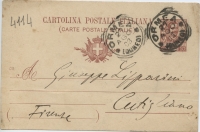 4414
CARTOLINA POSTALE ITALIANA
(CARTE POSTALE D'ITALIE)
ORMEA
ORMEA
(CUNEO)
A
Giuseppe Lipparini
Cutigliano
Firenze